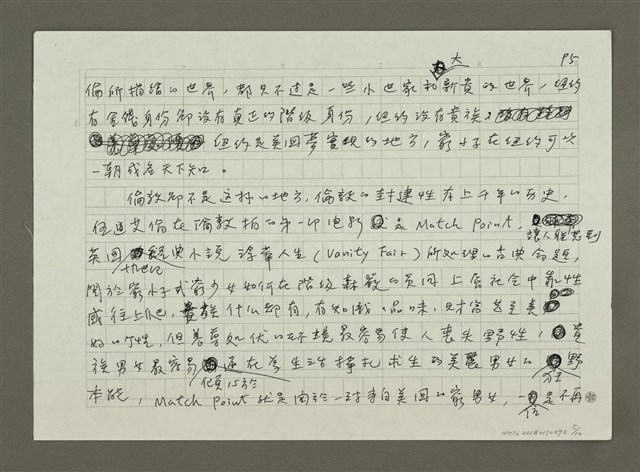 P5
倫所描繪的世界，都只不過是一些小世家和新貴的世界，紐約
大
有金錢身份卻沒有真正的階級身份，紐約沒有貴族，
紐約是美國夢實現的地方，窮小子在紐約可以
一朝成名天下知。
倫敦卻不是這样的地方，倫敦的封建性有上千年的歷史，
伍迪艾倫在倫敦拍的第一印电影就是Match Point，
讓人联想到
英国經典小説 浮華人生（Vanity Fair）所处理的古典命題，
十九世紀
関於窮小子或窮少女如何在階級森嚴的英国上层社会中
或往上爬，貴族什么都有，有知識、品味、財富甚至美
好的个性，但養尊処优的环境最容易使人喪失野性，貴
族男女最容易 还在為生活掙扎求生的美麗男女的 野
傾心於
狂
本能，Match Point就是関於一对來自美国的窮男女， 是不再
NMTL20180150292 5/10